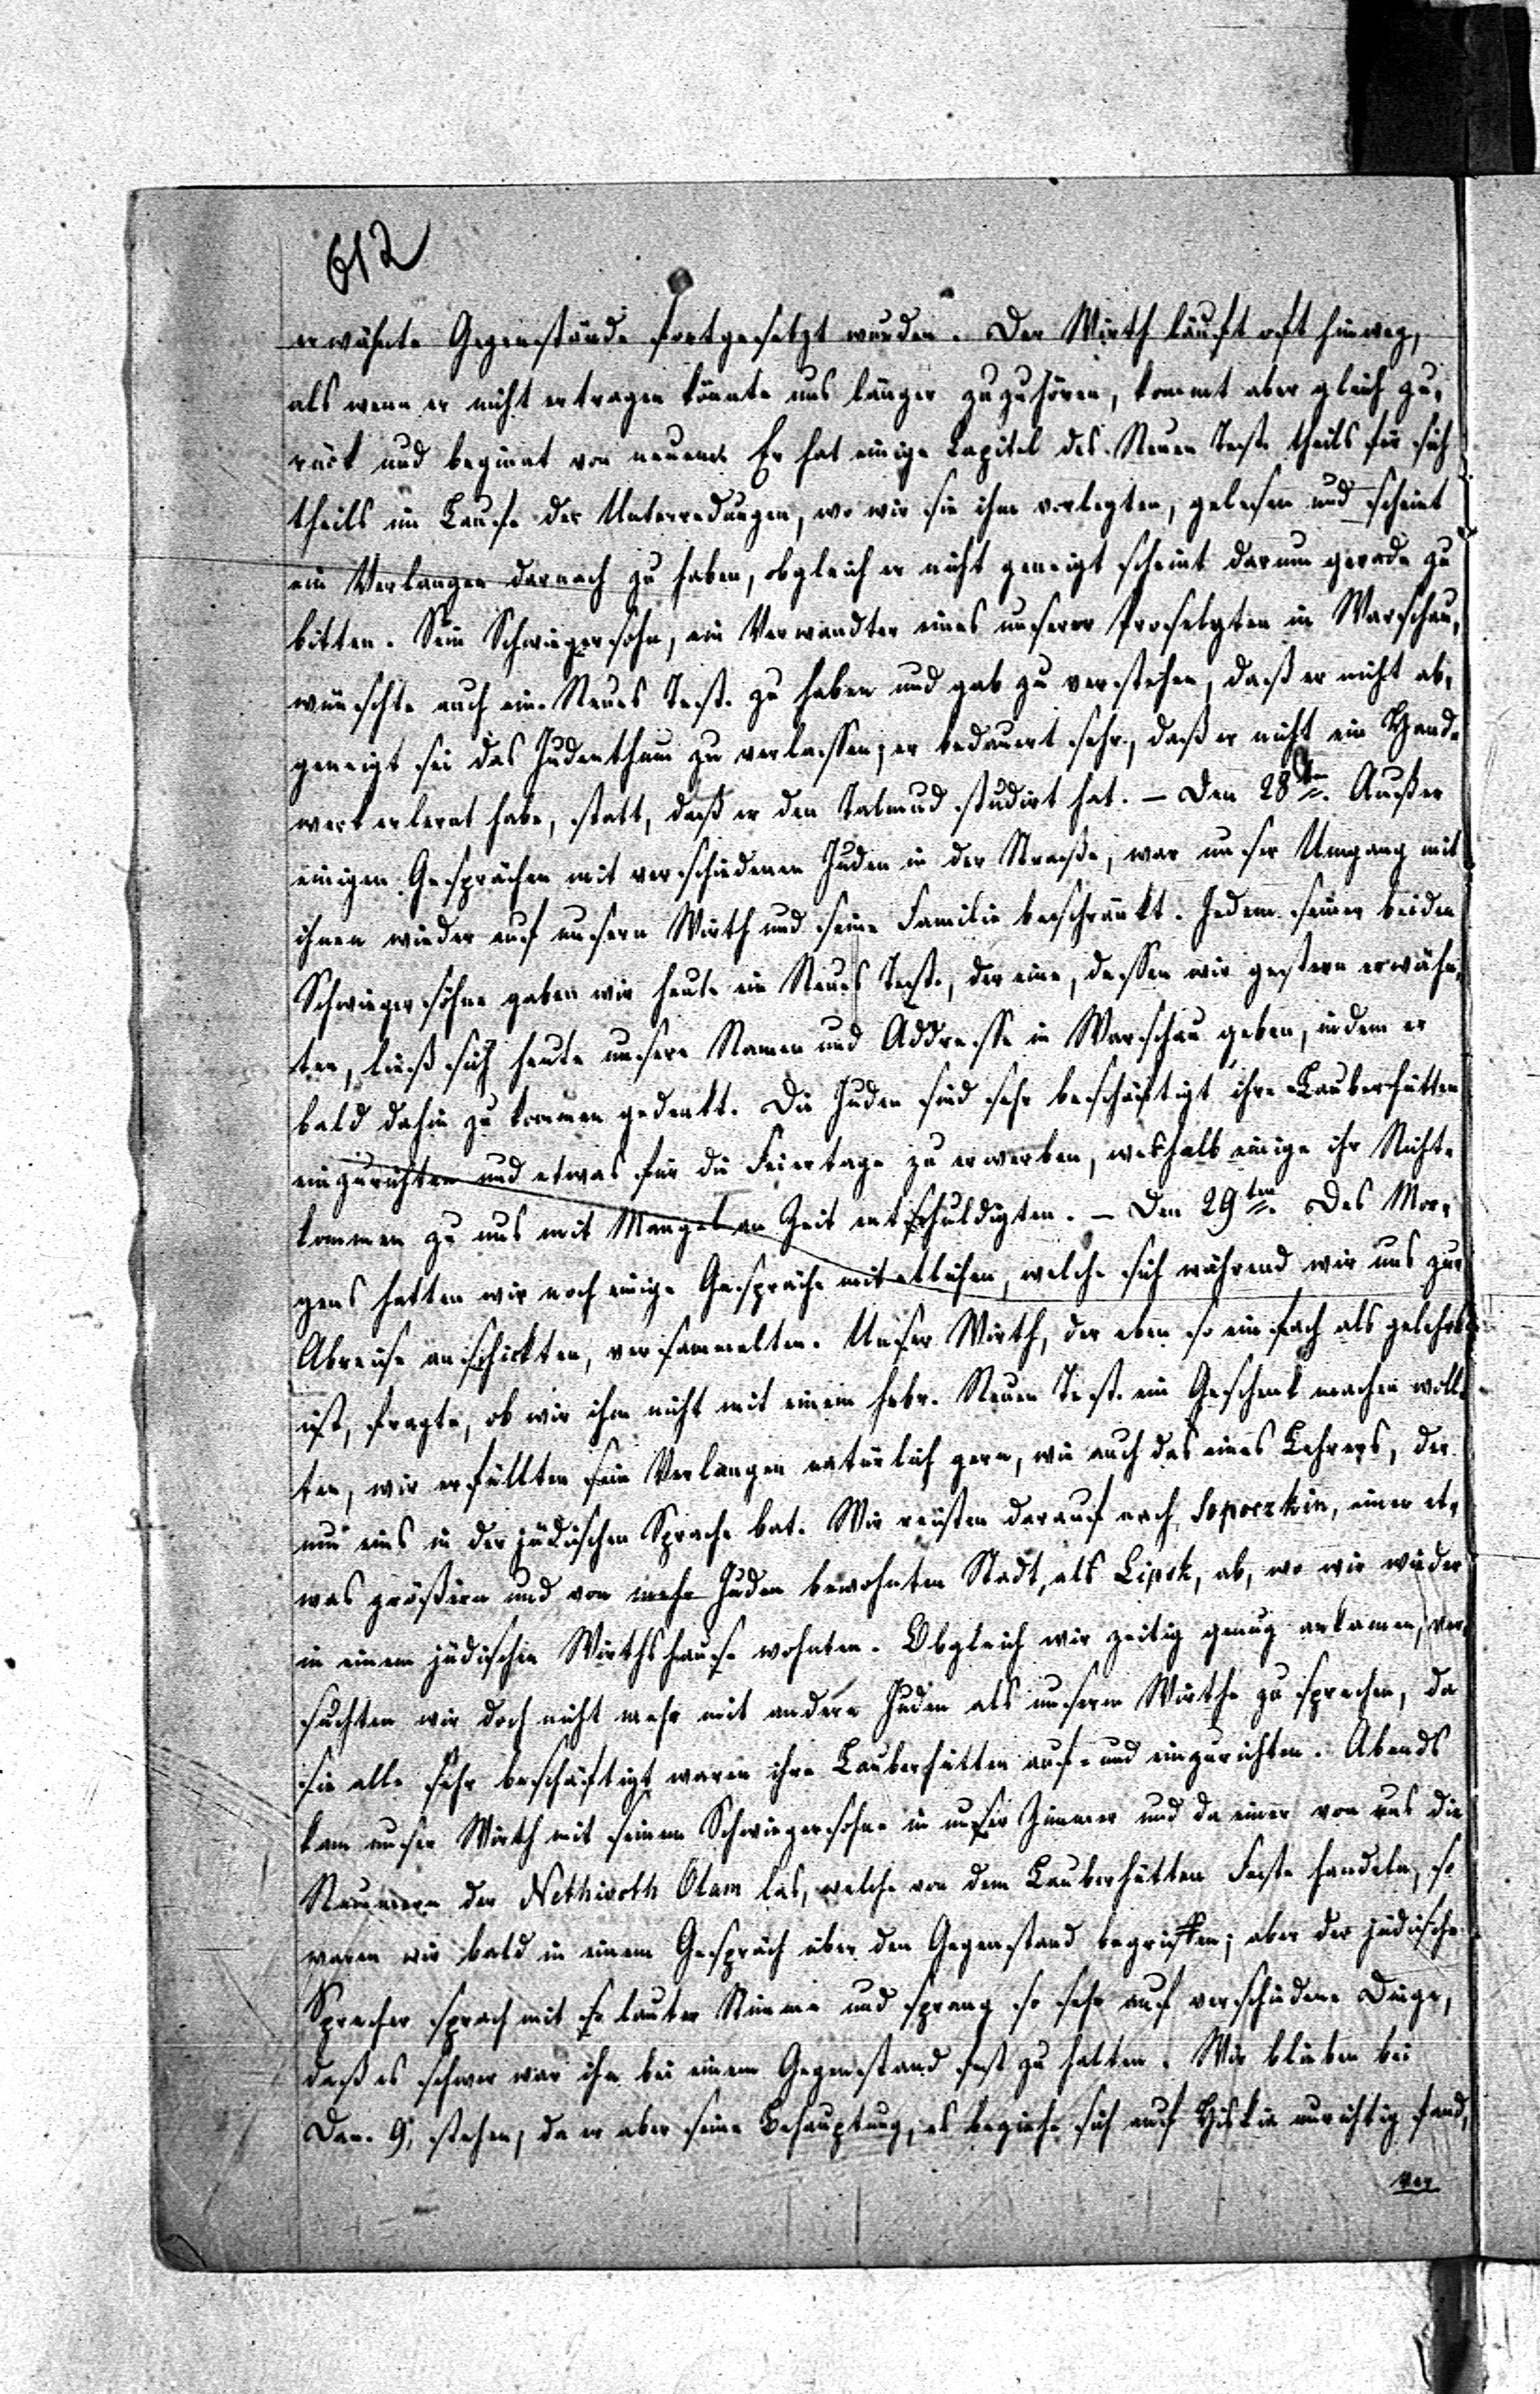 612
erwähnte Gegenstände fortgesetzt wurden. Der Wirth läuft oft hinweg,
als wenn er nicht ertragen könnte uns länger zuzuhören, kommt aber gleich zu,
rück und beginnt von neuem. Er hat einige Capitel des Neuen Test. theils für sich
theils im Laufe der Unterredungen, wo wir sie ihm vorlegten, gelesen und scheint
ein Verlangen darnach zu haben, obgleich er nicht geneigt scheint darum gerade zu
bitten. Sein Schwiegersohn, ein Verwandter eines unserer Proselyten in Warschau,
wünschte auch ein Neues Test. zu haben und gab zu verstehen, daß er nicht ab,
geneigt sei das Judenthum zu verlassen; er bedauert sehr, daß er nicht ein Hand-
werk erlernt habe, statt, daß er den Talmud studirt hat. – Den 28ten. Außer
einigen Gesprächen mit verschiedenen Juden in der Straße, war unser Umgang mit
ihnen wieder auf unsern Wirth und seine Familie beschränkt. Jedem seiner beiden
Schwiegersöhne gaben wir heute ein Neues Test., der eine, dessen wir gestern erwähn,
ten, ließ sich heute unsere Namen und Addresse in Warschau geben, indem er
bald dahin zu kommen gedenkt. Die Juden sind sehr beschäftigt ihre Lauberhütten
einzurichten und etwas für die Feiertage zu erwerben, weshalb einige ihr Nicht-
kommen zu uns mit Mangel an Zeit entschuldigten. – Den 29ten. Des Mor-
gens hatten wir noch einige Gespräche mit etlichen, welche sich während wir uns zur
Abreise anschickten, versammelten. Unser Wirth, der eben so einfach als gelehrt
ist, fragte, ob wir ihm nicht mit einem hebr. Neuen Test. ein Geschenk machen woll-
ten, wir erfüllten sein Verlangen natürlich gern, wie auch das eines Lehrers, der
um eins in der jüdischen Sprache bat. Wir reisten darauf nach Sopoczkin, einer et-
was größern und von mehr Juden bewohnten Stadt, als Lipsk, ab, wo wir wieder
in einem jüdischen Wirthshause wohnten. Obgleich wir zeitig genug ankamen, ver,
suchten wir doch nicht mehr mit andern Juden als unserm Wirthe zu sprechen, da
sie alle sehr beschäftigt waren ihre Lauberhütten auf- und einzurichten. Abends
kam unser Wirth mit seinem Schwiegersohne in unser Zimmer und da einer von uns die
Nummern der Nethivoth Olam las, welche von dem Lauberhütten Feste handeln, so
waren wir bald in einem Gespräch über den Gegenstand begriffen; aber der jüdische
Sprecher sprach mit so lauter Stimme und sprang so sehr auf verschiedene Dinge,
daß es schwer war ihn bei einem Gegenstand fest zu halten. Wir blieben bei
Dan. 9, stehen, da er aber seine Behauptung, es beziehe sich auf Hiskia unrichtig fand,
ver